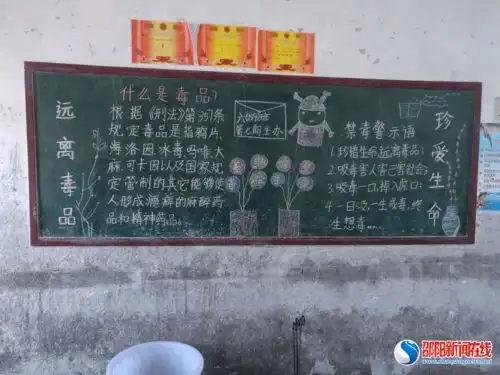 远离毒品
什么是毒品？
根据《刑法》第357条
规定毒品是指鸦片、
海洛因、冰毒、吗啡、大
麻、可卡因以及国家规
定管制的其它能够使
人形成瘾癖的麻醉药
品和精神药品。
主办
禁毒警示语
1.珍惜生命远离毒品;
2.吸毒害人害己害社会;
3.吸毒一口,掉入虎口;
4.一日吸毒,终
生想毒
珍爱生命
邵阳新闻在线